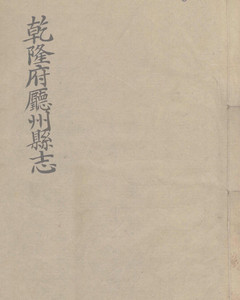 乾隆府廳州縣志